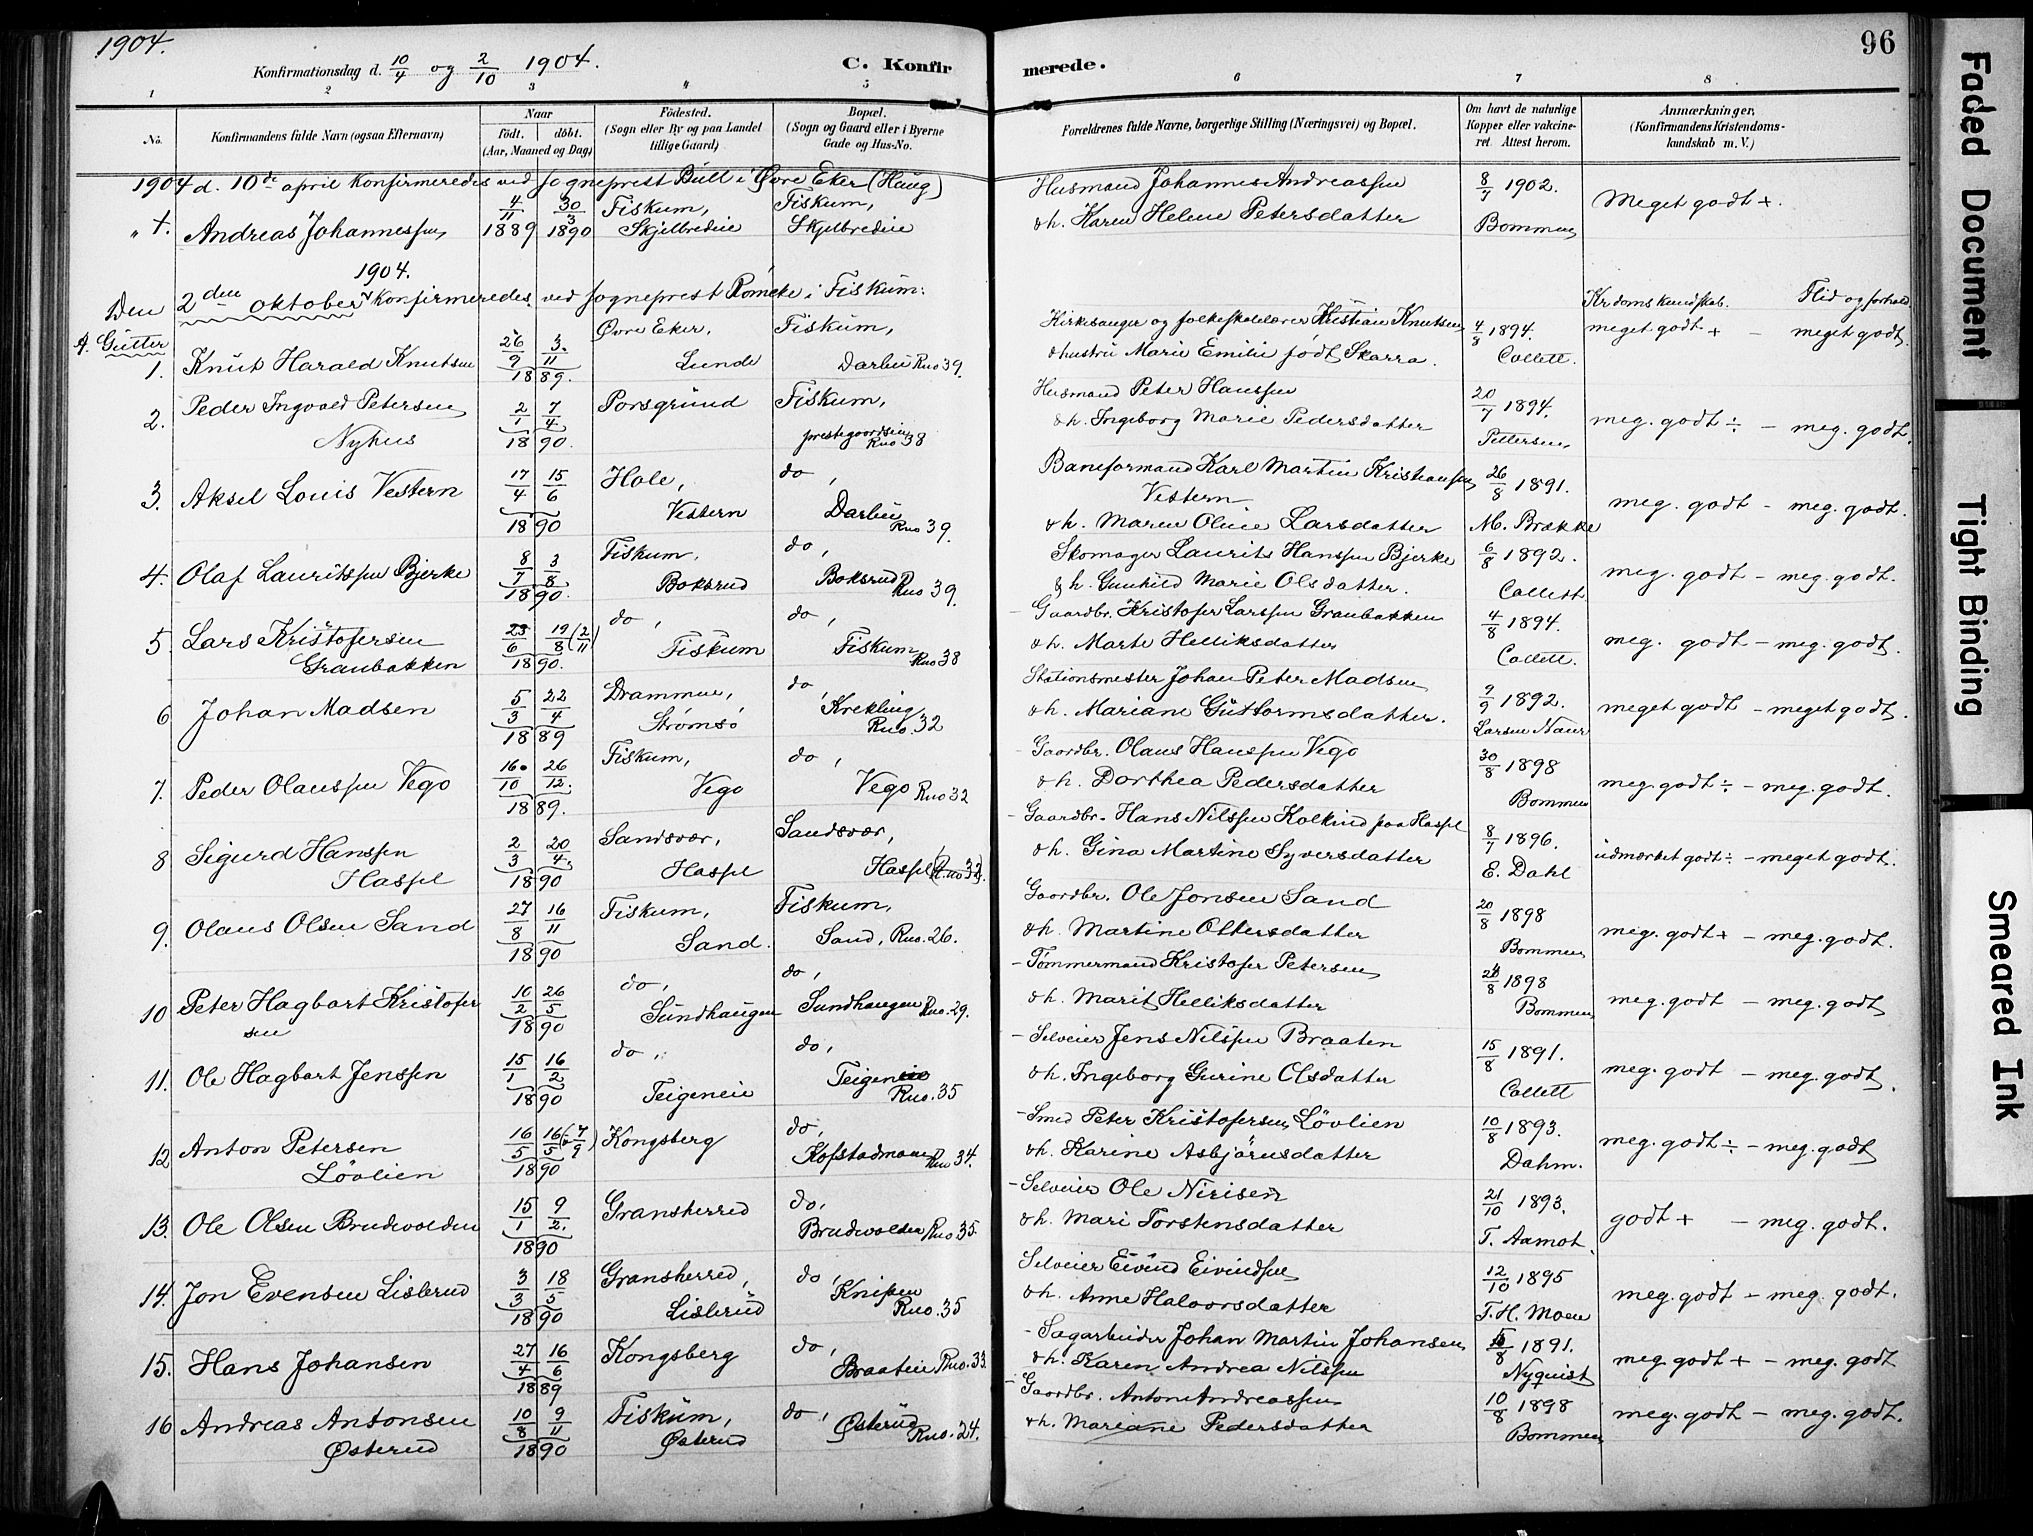 1904.
Konfirmationsdag d. 10/4 og 2/10 1904.
C. Konfir
1 2 3 4 5
No.
Konfirmandens fulde Navn (ogsaa Efternavn)
Naar
født. døbt.
(Aar, Maaned og Dag)
Fødested.
(Sogn eller By og paa Landet
tillige Gaard)
Bopæl.
(Sogn og Gaard eller i Byerne
Gade og Hus-No.
1904 d. 10de april Konfirmeredes ved sogneprest Bull i Øvre Eker (Haug)
Andreas Johannessen 4/11 1889 30/3 1890 Fiskum, Skjelbredeie Fiskum, Skjelbredeie
1904.
Den 2den oktober Konfirmeredes ved sogneprest Rømcke i Fiskum:
A. Gutter
1. Knut Harald Knutsen 26/9 3/11 1889. Øvre Eker, Lunde Fiskum, Darbu Rno 39.
2. Peder Ingvald Petersen Nyhus 2/1 7/4 1890. Porsgrund Fiskum, prestegaardseie Rno 38
3. Aksel Louis Vestern 17/4 15/6 1890 Hole, Vestern do, Darbu Rno 39.
4. Olaf Lauritssen Bjerke 8/7 3/8 1890. Fiskum, Boksrud do, Boksrud Rno 39.
5. Lars Kristofersen Graubakken 23/6 19/8 (2/11) 1890. do, Fiskum do, Fiskum Rno 38
6 Johan Madsen 5/3 22/4 1889 Drammen, Strømsø do, Krekling Rno. 32
7. Peder Olaussen Vego 16/10 26/12. 1889. Fiskum, Vego do, Vego Rno 32
8 Sigurd Hanssen Hassel 2/3 20/4. 1890 Sandsvær, Hassel Sandsvær, Hassel (R.no 32).
9. Olaus Olsen Sand 27/8 16/11 1890 Fiskum, Sand. Fiskum, Sand, Rno. 26.
10 Peter Hagbart Kristofersen 10/2 26/5 1890 do, Sundhaugen do, Sundhaugen Rno. 29.
11. Ole Hagbart Jenssen 15/1 16/2 1890 do, Teigeneie do, Teigen Rno. 35
12 Anton Petersen Løvlien 16/5 16/5 (7/9) 1890 Kongsberg do, Kofstadmoen Rno 34.
13. Ole Olsen Brudevolden 15/1 9/2. 1890 Gransherred do, Brudevolden Rno 35.
14. Jon Evensen Lislerud 3/3 18/5 1890 Gransherred, Lislerud do, Knipen Rno. 35
15. Hans Johansen 27/4 16/6 1889 Kongsberg do, Braateie Rno. 33.
16 Andreas Antonsen Østerud 10/8 9/11 1890 Fiskum, Østerud do, Østerud Rno. 24.
merede.
96
6 7 8
Forældrenes fulde Navne, borgerlige Stilling (Næringsvei) og Bopæl.
Om havt de naturlige
Kopper eller vakcine-
ret. Attest herom.
Anmærkninger,
(Konfirmandens Kristendoms-
kundskab m. V.)
Husmand Johannes Andreassen 8/7 1902.
& h. Karen Helene Petersdatter Bommen Meget godt +.
Krdomskundskab. Flid og forhold
Kirkesanger og folkeskolelærer Kristian Knutsen 4/8 1894. meget godt + - meget godt.
& hustru Marie Emilie født Skarra. Collett.
Husmand Peter Hanssen 20/7 1894.
& h. Ingeborg Marie Pedersdatter Pettersen, meg. godt ÷ - meg. godt.
Baneformand Karl Martin Kristiansen Vestern 26/8 1891.
& h. Maren Oline Larsdatter M. Brække meg. godt - meg. godt.
Skomager Laurits Hanssen Bjerke 6/8 1892.
& h. Gunhild Marie Olsdatter. Collett. meg. godt - meg. godt.
Gaardbr. Kristofer Larssen Graubakken 4/8 1894.
& h. Marte Helliksdatter Collett. meg. godt - meg. godt.
Stationsmester Johan Peter Madsen 9/9 1892.
& h. Mariane Guttormsdatter. Larsen Naur meget godt - meget godt.
Gaardbr. Olaus Hanssen Vego 30/8 1898
& h. Dorthea Pedersdatter Bommen meg. godt ÷ - meg. godt.
Gaardbr. Hans Nilssen Kolkind paa Hassel 8/7 1896.
& h. Gina Martine Syversdatter E. Dahl udmærket godt ÷ - meget godt.
Gaardbr. Ole Jonsen Sand 20/8 1898
& h. Martine Ottersdatter Bommen meg. godt + - meg. godt.
Tømmermand Kristofer Petersen 1898
& h. Marit Helliksdatter Bommen meg. godt - meg. godt
Selveier Jens Nilssen Braaten 15/8 1891.
& h. Ingeborg Gurine Olsdatter Collett meg. godt - meg. godt.
Smed Peter Kristofersen Løvlien 10/8 1893.
& h. Karine Asbjørnsdatter Dahm. meg. godt ÷ - meg. godt
Selveier Ole Nirisen 21/10 1893.
& h. Mari Torstensdatter T. Aamot. godt + - meg. godt.
Selveier Eivind Eivindsen 12/10 1895
& h. Anne Halvorsdatter T. H. Moen meg. godt - meg. godt.
Sagarbeider Johan Martin Johansen 1891.
& h. Karen Andrea Nilssen Nyquist meg. godt + - meg. godt
Gaardbr. Anton Andreassen 10/8 1898
& h. Mariane Pedersdatter Bommen meg. godt - meg. godt.
Faded Document
Tight Binding
Smeared Ink